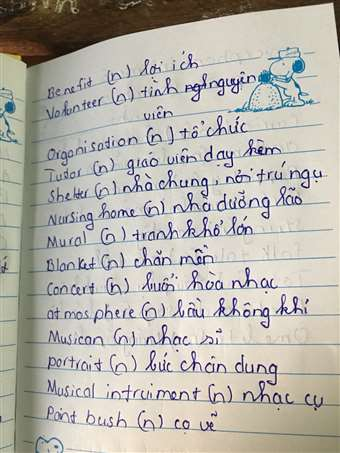 Benefit (n) lợi ích
Volunteer (n) tình nguyện
viên
Organisation (n) tổ chức
Tudor (n) giáo viên dạy kèm
Shelter (n) nhà chung, nơi trú ngụ
Nursing home (n) nhà dưỡng lão
Mural (n) tranh khổ lớn
Blanket (n) chăn mền
Concert (n) buổi hòa nhạc
atmosphere (n) bầu không khí
Musican (n) nhạc sĩ
portrait (n) bức chân dung
Musical intruiment (n) nhạc cụ
Paint bush (n) cọ vẽ